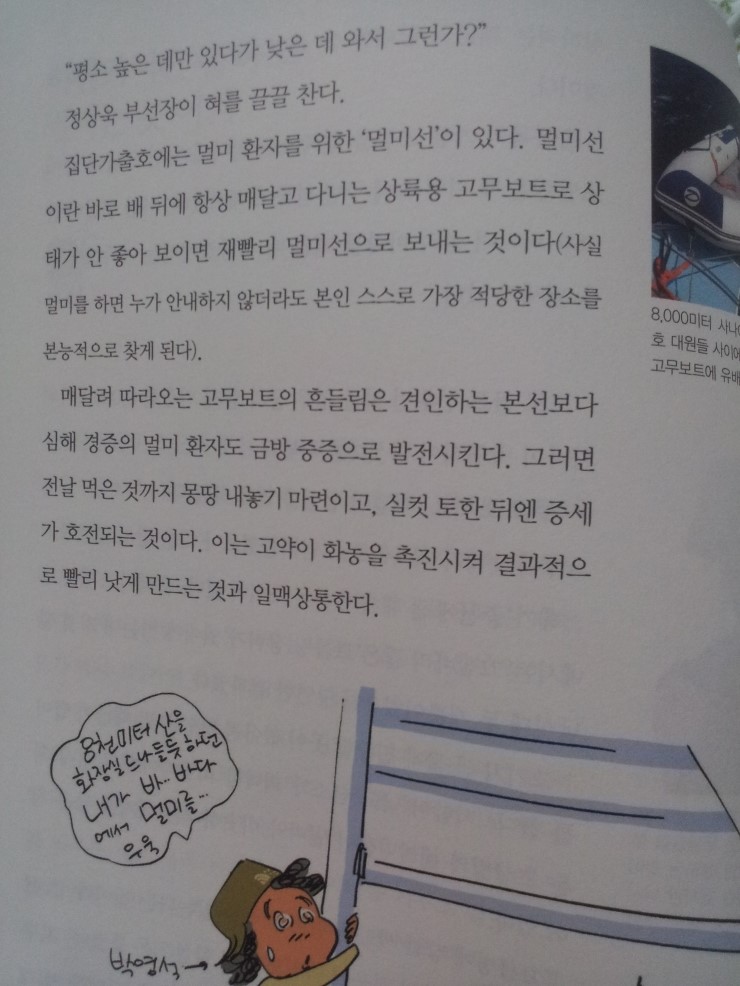 “평소 높은 데만 있다가 낮은 데 와서 그런가?”
정상욱 부선장이 혀를 끌끌 찬다.
집단가출호에는 멀미 환자를 위한 ‘멀미선’이 있다. 멀미선
이란 바로 배 뒤에 항상 매달고 다니는 상륙용 고무보트로 상
태가 안 좋아 보이면 재빨리 멀미선으로 보내는 것이다(사실
멀미를 하면 누가 안내하지 않더라도 본인 스스로 가장 적당한 장소를
본능적으로 찾게 된다).
매달려 따라오는 고무보트의 흔들림은 견인하는 본선보다
심해 경증의 멀미 환자도 금방 중증으로 발전시킨다. 그러면
전날 먹은 것까지 몽땅 내놓기 마련이고, 실컷 토한 뒤엔 증세
가 호전되는 것이다. 이는 고약이 화농을 촉진시켜 결과적으
로 빨리 낫게 만드는 것과 일맥상통한다.
8,000미터
호 대원들 사이에
고무보트에
8천미터 산을
화장실 드나들듯 하던
내가 바.. 바다
에서 멀미를...
우욱
박영석→